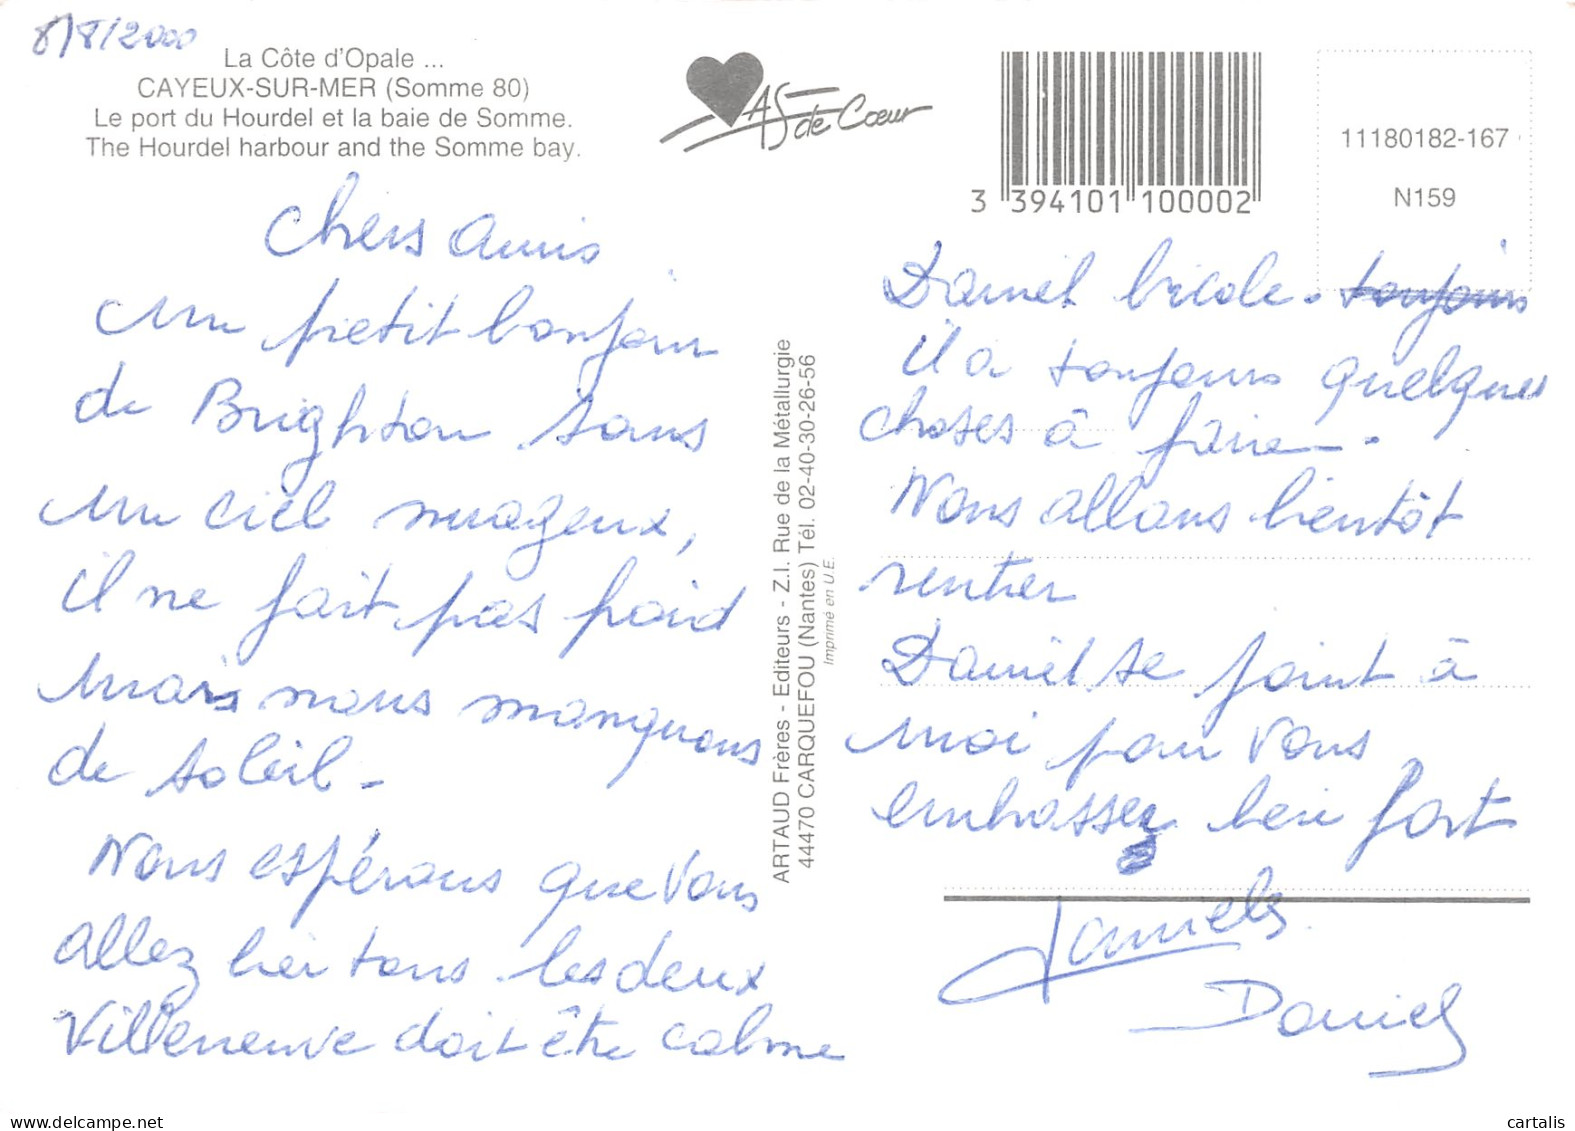 8/8/2000
La Côte d'Opale ...
CAYEUX-SUR-MER (Somme 80)
Le port du Hourdel et la baie de Somme.
The Hourdel harbour and the Somme bay.
As de Cœur
3 394101 100002
11180182-167
N159
Chers amis
un petit bonjour
de Brighton sous
un ciel nuageux,
il ne fait pas froid
mais nous manquons
de soleil -
Nous espérons que vous
allez bien tous les deux
Villeneuve doit être calme
ARTAUD Frères - Editeurs - Z.I. Rue de la Métallurgie
44470 CARQUEFOU (Nantes) Tél. 02-40-30-26-56
Imprimé en U.E.
Daniel bricole. toujours
il a toujours quelques
choses à faire -.
Nous allons bientôt
rentrer
Daniel se joint à
moi pour vous
embrasser bien fort
Daniel
cartalis
delcampe.net